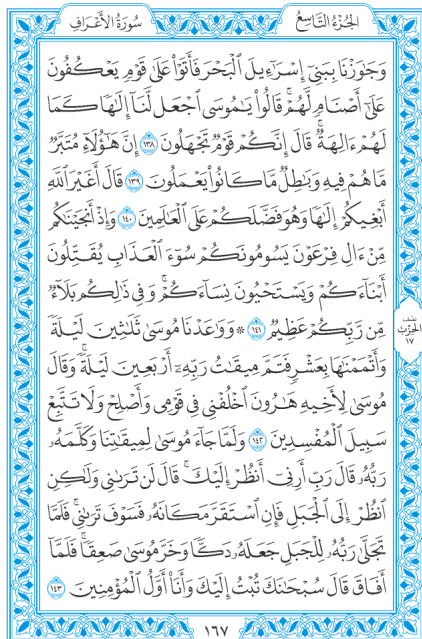 الجُزْءُ التَّاسِعُ
سُورَةُ الأَعْرَافِ
وَجَٰوَزْنَا بِبَنِىٓ إِسْرَٰٓءِيلَ ٱلْبَحْرَ فَأَتَوْا۟ عَلَىٰ قَوْمٍ يَعْكُفُونَ
عَلَىٰٓ أَصْنَامٍ لَّهُمْ ۚ قَالُوا۟ يَٰمُوسَى ٱجْعَل لَّنَآ إِلَٰهًا كَمَا
لَهُمْ ءَالِهَةٌ ۚ قَالَ إِنَّكُمْ قَوْمٌ تَجْهَلُونَ ١٣٨ إِنَّ هَٰٓؤُلَآءِ مُتَبَّرٌ
مَّا هُمْ فِيهِ وَبَٰطِلٌ مَّا كَانُوا۟ يَعْمَلُونَ ١٣٩ قَالَ أَغَيْرَ ٱللَّهِ
أَبْغِيكُمْ إِلَٰهًا وَهُوَ فَضَّلَكُمْ عَلَى ٱلْعَٰلَمِينَ ١٤٠ وَإِذْ أَنجَيْنَٰكُم
مِّنْ ءَالِ فِرْعَوْنَ يَسُومُونَكُمْ سُوٓءَ ٱلْعَذَابِ ۖ يُقَتِّلُونَ
أَبْنَآءَكُمْ وَيَسْتَحْيُونَ نِسَآءَكُمْ ۚ وَفِى ذَٰلِكُم بَلَآءٌ
مِّن رَّبِّكُمْ عَظِيمٌ ١٤١ ۞ وَوَٰعَدْنَا مُوسَىٰ ثَلَٰثِينَ لَيْلَةً
وَأَتْمَمْنَٰهَا بِعَشْرٍ فَتَمَّ مِيقَٰتُ رَبِّهِۦٓ أَرْبَعِينَ لَيْلَةً ۚ وَقَالَ
مُوسَىٰ لِأَخِيهِ هَٰرُونَ ٱخْلُفْنِى فِى قَوْمِى وَأَصْلِحْ وَلَا تَتَّبِعْ
سَبِيلَ ٱلْمُفْسِدِينَ ١٤٢ وَلَمَّا جَآءَ مُوسَىٰ لِمِيقَٰتِنَا وَكَلَّمَهُۥ
رَبُّهُۥ قَالَ رَبِّ أَرِنِىٓ أَنظُرْ إِلَيْكَ ۚ قَالَ لَن تَرَىٰنِى وَلَٰكِنِ
ٱنظُرْ إِلَى ٱلْجَبَلِ فَإِنِ ٱسْتَقَرَّ مَكَانَهُۥ فَسَوْفَ تَرَىٰنِى ۚ فَلَمَّا
تَجَلَّىٰ رَبُّهُۥ لِلْجَبَلِ جَعَلَهُۥ دَكًّا وَخَرَّ مُوسَىٰ صَعِقًا ۚ فَلَمَّآ
أَفَاقَ قَالَ سُبْحَٰنَكَ تُبْتُ إِلَيْكَ وَأَنَا۠ أَوَّلُ ٱلْمُؤْمِنِينَ ١٤٣
نصف
الحزب
١٧
١٦٧